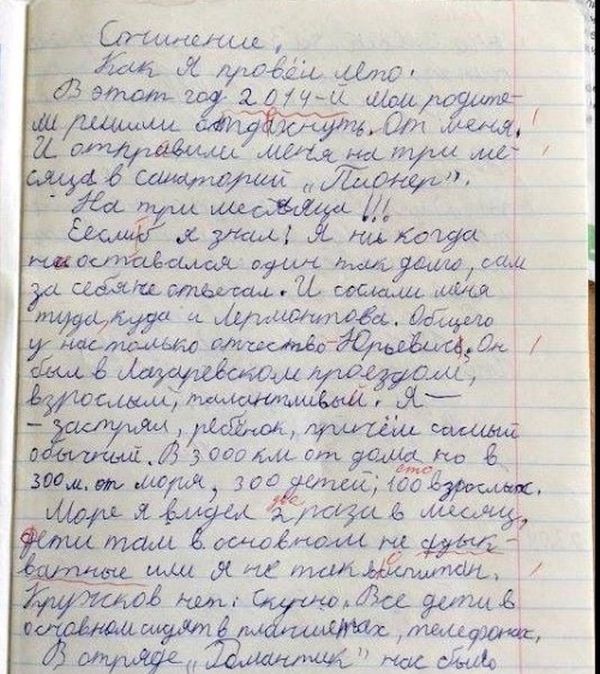 Сочинение.
Как я провёл лето.
В этот год 2014-й мои родите-
ли решили отдахнуть. От меня.
И отправили меня на три ме-
сяца в санаторий „Пионер".
На три месяца!!!
Еслиб я знал! Я ни когда
не оставался один так долго, сам
за себя не отвечал. И сослали меня
туда, куда и Лермонтова. Общего
у нас только отчество - Юрьевич. Он
был в Лазаревском проездом,
взрослый, талантливый. Я —
- застрял, ребёнок, причём самый
обычный. В 3000 км от дома но в
300 м. от моря, 300 детей, 100 сто взрослых.
Море я видел 2 две раза в месяц,
дети там в основном не адык-
ватные или я не так воспитан.
Кружков нет. Скучно. Все дети в
основном сидят в планшетах, телефонах.
В отряде „Романтик" нас было